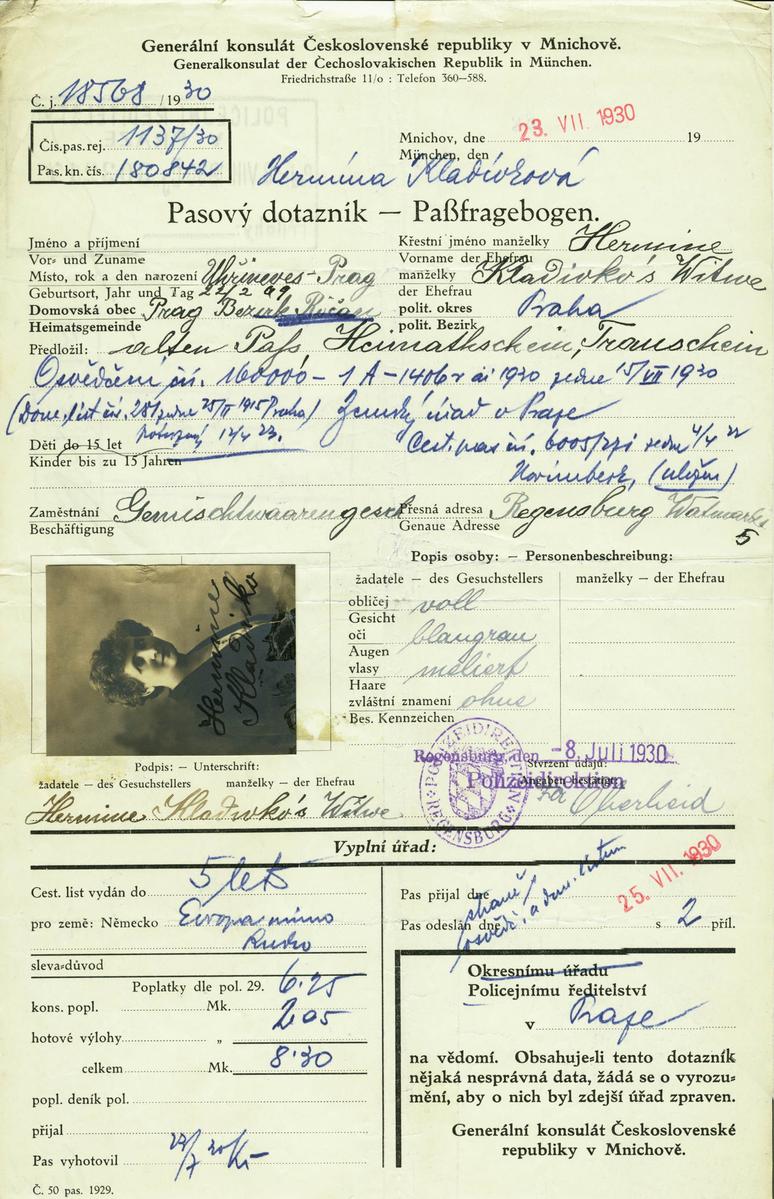 Generální konsulát Československé republiky v Mnichově.
Generalkonsulat der Čechoslovakischen Republik in München.
Friedrichstraße 11/o : Telefon 360—588.
Č. j. 18568 /1930
Čís. pas. rej. 1137/30
Pas. kn. čís. 180842
Mnichov, dne 23. VII. 1930 19
München, den
Hermína Kladívková
Pasový dotazník — Paßfragebogen.
Jméno a příjmení
Vor- und Zuname
Křestní jméno manželky Hermine
Vorname der Ehefrau
Místo, rok a den narození Uhříneves-Prag
Geburtsort, Jahr und Tag 22/2 69
manželky Kladivko's Witwe
der Ehefrau
Domovská obec Prag Bezirk Říčan
Heimatsgemeinde
polit. okres Praha
polit. Bezirk
Předložil: alten Paß, Heimathschein, Trauschein
Osvědčení čís. 160000 - 1 A - 1406 1930 15/VII 1930
(Dom. list čís. 25/II 1915 Praha) Zemský úřad v Praze
Děti do 15 let
Kinder bis zu 15 Jahren
Cest. pas čís. 6005/ 4/4 22
Norimberk, (uložen)
Zaměstnání Gemischtwaarengesch
Beschäftigung
Přesná adresa Regensburg Watmarkt
Genaue Adresse 5
Popis osoby: — Personenbeschreibung:
žadatele — des Gesuchstellers manželky — der Ehefrau
obličej voll
Gesicht
oči blaugrau
Augen
vlasy meliert
Haare
zvláštní znamení ohne
Bes. Kennzeichen
Hermine
Kladivko
Regensburg, den -8. Juli 1930
Stvrzení údajů:
Angaben bestätigt:
Polizeidirektion
POLIZEIDIREKTION REGENSBURG
Oberheid
Podpis: — Unterschrift:
žadatele — des Gesuchstellers manželky — der Ehefrau
Hermine Kladivko's Witwe
Vyplní úřad:
Cest. list vydán do 5 let
pro země: Německo Evropa mimo
Rusko
sleva-důvod
Poplatky dle pol. 29. 6.25
kons. popl. Mk. 2.05
hotové výlohy „
celkem Mk. 8.30
popl. deník pol.
přijal
Pas vyhotovil
Č. 50 pas. 1929.
Pas přijal dne
25. VII. 1930
Pas odeslán dne s 2 příl.
Okresnímu úřadu
Policejnímu ředitelství
v Praze
na vědomí. Obsahuje-li tento dotazník
nějaká nesprávná data, žádá se o vyrozu-
mění, aby o nich byl zdejší úřad zpraven.
Generální konsulát Československé
republiky v Mnichově.